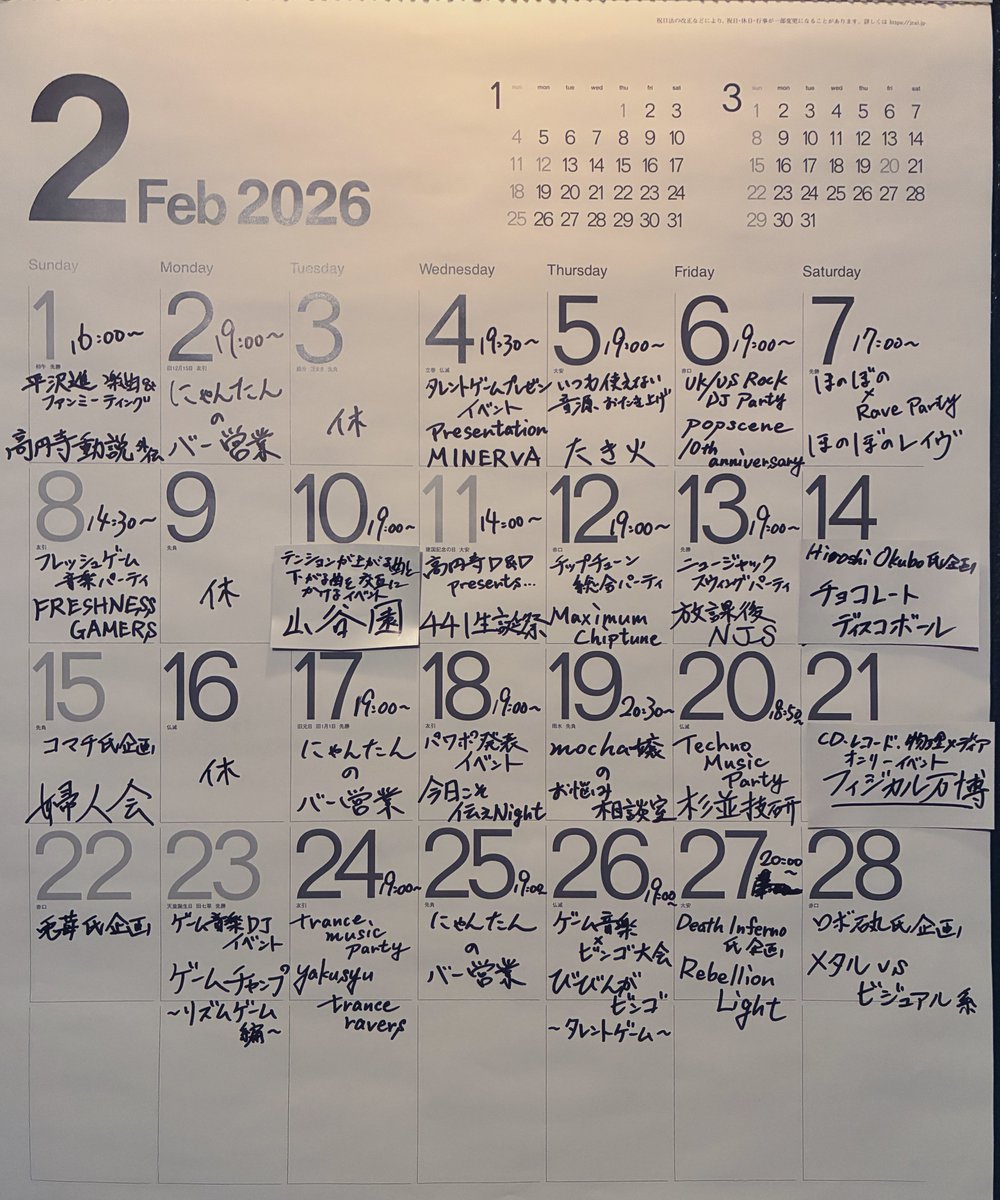 祝日法の改正などにより、祝日・休日・行事が一部変更になることがあります。詳しくは https://jcal.jp
2 Feb 2026
1
sun mon tue wed thu fri sat
1 2 3
4 5 6 7 8 9 10
11 12 13 14 15 16 17
18 19 20 21 22 23 24
25 26 27 28 29 30 31
3
sun mon tue wed thu fri sat
1 2 3 4 5 6 7
8 9 10 11 12 13 14
15 16 17 18 19 20 21
22 23 24 25 26 27 28
29 30 31
Sunday Monday Tuesday Wednesday Thursday Friday Saturday
1 16:00~
先勝
平沢進 楽曲&
ファンミーティング
高円寺動説
2 19:00~
旧12月15日 友引
にゃんたん
の
バー営業
3
節分 先負
休
4 19:30~
立春 仏滅
タレントゲームプレゼン
イベント
Presentation
MINERVA
5 19:00~
大安
いつも使えない
音源、おたき上げ
たき火
6 19:00~
赤口
UK/US Rock
DJ Party
popscene
10th
anniversary
7 17:00~
先勝
ほのぼの
×
Rave Party
ほのぼのレイヴ
8 14:30~
友引
フレッシュゲーム
音楽パーティ
FRESHNESS
GAMERS
9
先負
休
10 19:00~
テンションが上がる曲と
下がる曲を交互に
かけるイベント
山谷園
11 14:00~
建国記念の日 大安
高円寺D&D
presents...
441生誕祭
12 19:00~
赤口
チップチューン
総合パーティ
Maximum
Chiptune
13 19:00~
先勝
ニュージャック
スウィングパーティ
放課後
NJS
14
Hiroshi Okubo氏企画
チョコレート
ディスコボール
15
先負
コマチ氏企画
婦人会
16
仏滅
休
17 19:00~
旧元日 旧1月1日 先勝
にゃんたん
の
バー営業
18 19:00~
友引
パワポ発表
イベント
今日こそ
伝えNight
19 20:30~
雨水 先負
mocha嬢
の
お悩み
相談室
20 18:50~
仏滅
Techno
Music
Party
杉並技研
21
CD、レコード、物理メディア
オンリーイベント
フィジカル万博
22
赤口
氏企画
23
天皇誕生日 旧七草 先勝
ゲーム音楽DJ
イベント
ゲームチャンプ
~リズムゲーム
編~
24 19:00~
友引
trance
music
party
yakusyu
trance
ravers
25 19:00
先負
にゃんたん
の
バー営業
26 19:00~
仏滅
ゲーム音楽
×
ビンゴ大会
びびんが
ビンゴ
~タレントゲーム~
27 20:00
~
大安
Death Inferno
氏企画
Rebellion
Light
28
赤口
ロボ石丸氏企画
メタル vs
ビジュアル系